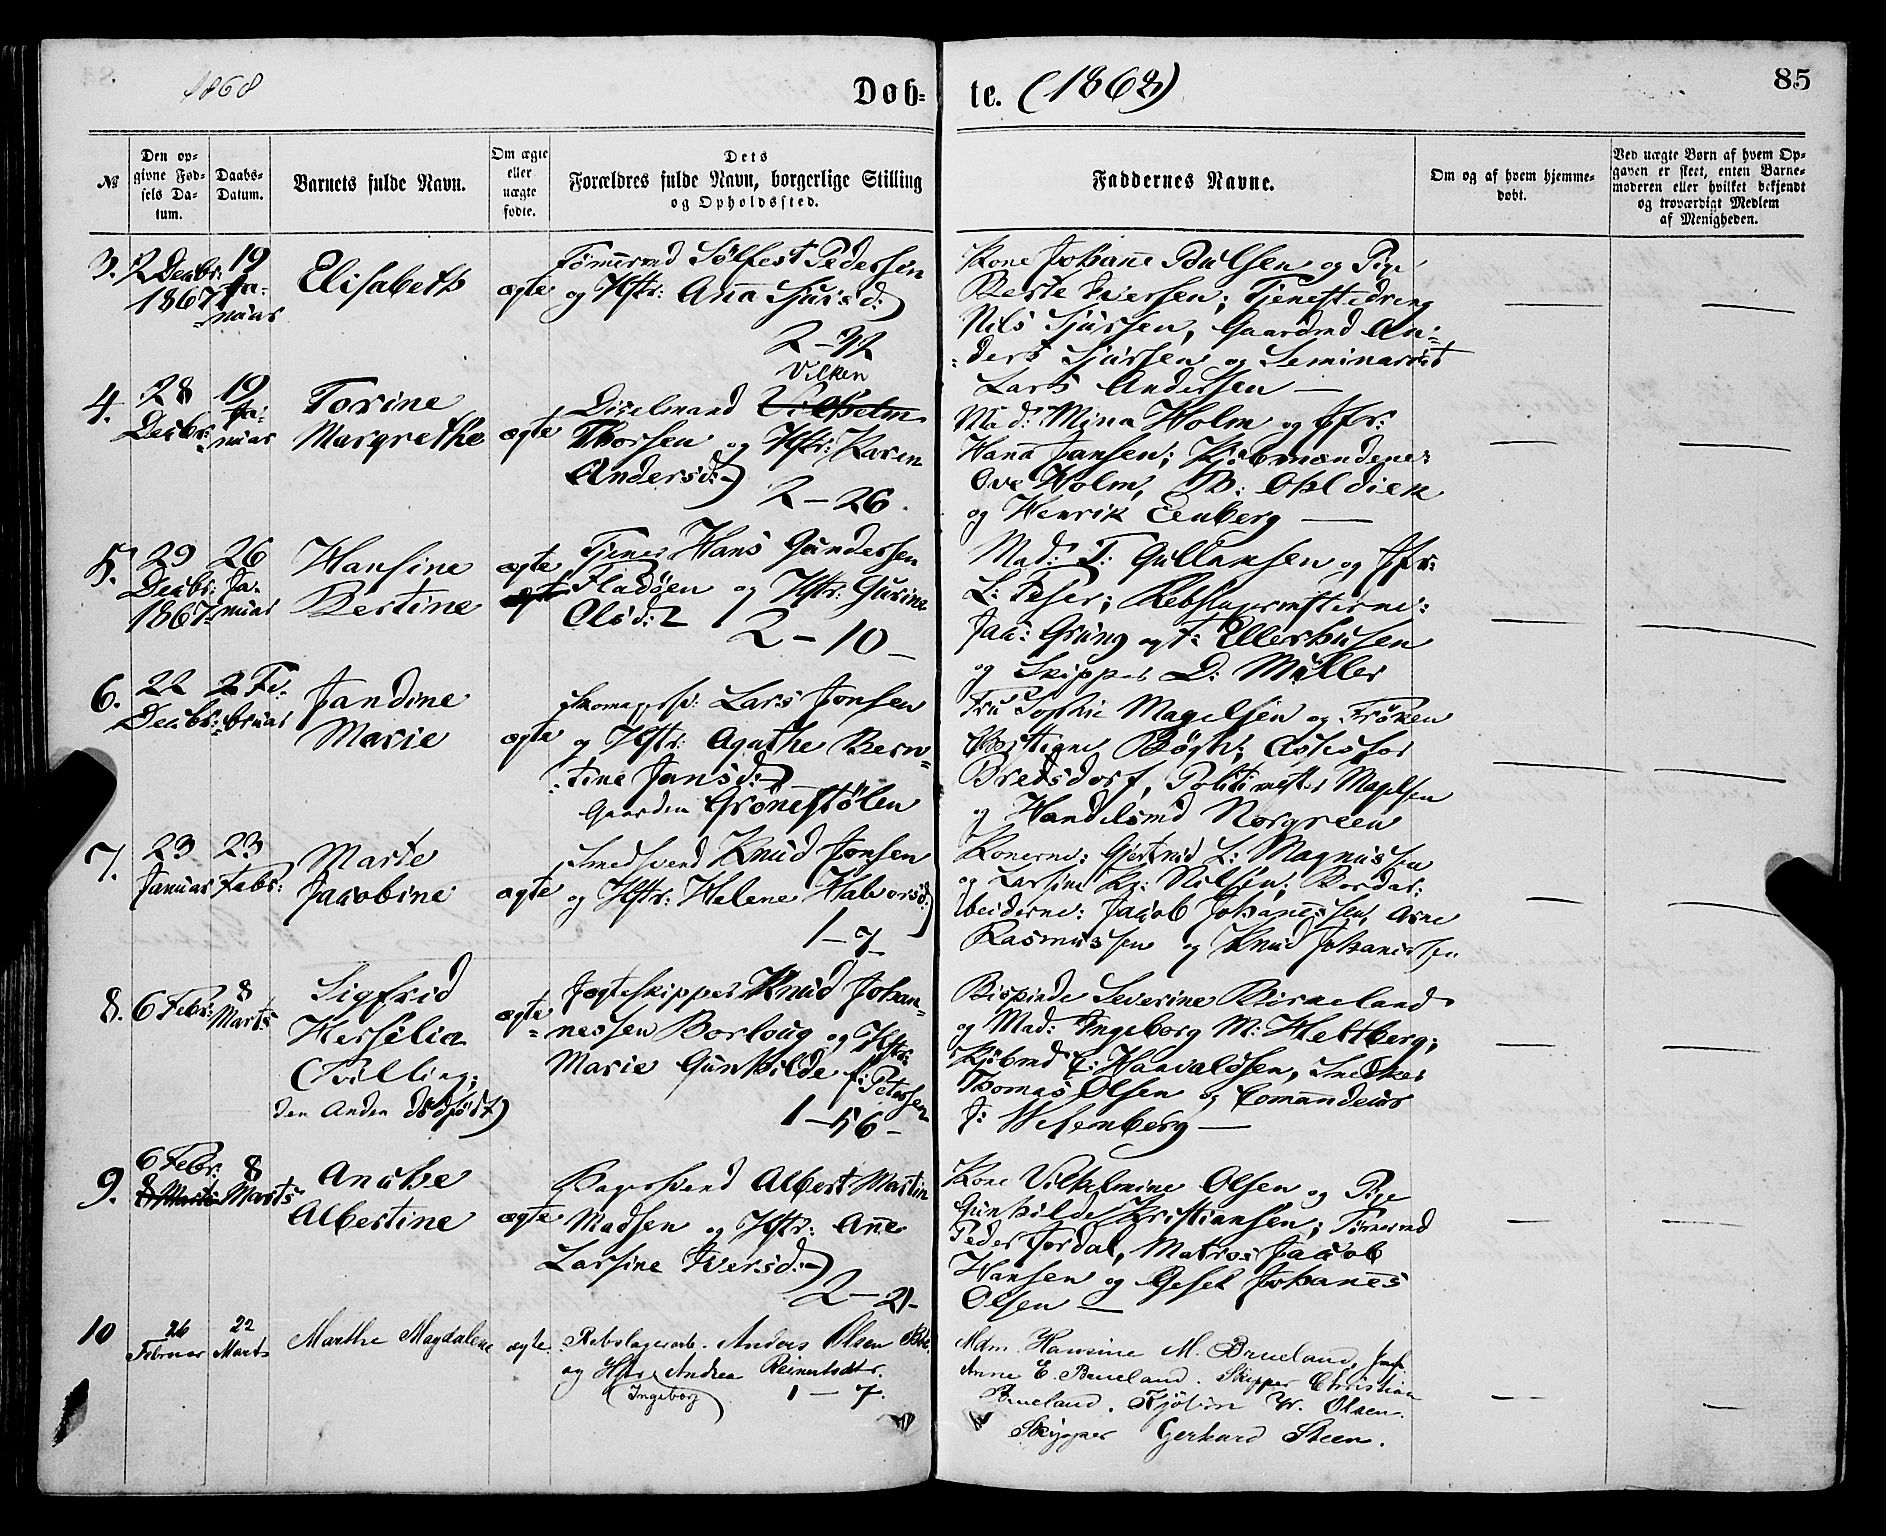 1868
Døb-
te. (1868)
85
№
Den op-
givne Fød-
sels Da-
tum.
Daabs-
Datum.
Barnets fulde Navn.
Om ægte
eller
uægte
fødte.
Dets
Forældres fulde Navn, borgerlige Stilling
og Opholdssted.
Faddernes Navne.
Om og af hvem hjemme-
døbt.
Ved uægte Børn af hvem Op-
gaven er skeet, enten Barne-
moderen eller hvilket bekjendt
og troværdigt Medlem
af Menigheden.
3.
2 Decbr:
1867
19
Ja-
nuar
Elisabeth
ægte
Tømmermd Sølfest Pedersen
og Hstr: Anna Sjursd:)
2-92
Kone Johanne Paulsen og Pige
Berte Iversen; Tjenestedreng
Nils Sjursen, Gaardmd An-
ders Sjursen og Seminarist
Lars Andersen —
4.
28
Decbr:
19
Ja-
nuar
Torine
Margrethe
ægte
Vilken
Diselmand Vilhelm
Thorsen og Hstr: Karen
Andersd:)
2-26.
Mad: Mina Holm og Jfr:
Hanna Jansen; Kjøbmændene:
Ove Holm, Th: Ohldiek
og Henrik Eenberg —
5.
29
Decbr:
1867
26
Ja-
nuar
Hansine
Bertine
ægte
Tjener Hans Gundersen
Fladøen og Hstr: Gurine
Olsd:
2-10-
Mad: T: Gullaksen og Jfr:
L: Feser; Rebslagermesterne:
Jac: Grung og J: Ellerhusen
og Skipper D: Müller
6.
22
Decbr:
2 Fe-
bruar
Jandine
Marie
ægte
Skomagersv: Lars Jonsen
og Hstr: Agathe Bern-
tine Jansd:)
Gaarden Grönestölen
Fru Sophie Magelsen og Frøken
Bøgh; Assessor
Bredsdorf, Politimester Magelsen
og Handelsmd Norgreen
7.
23
Januar
23
Febr:
Marte
Jacobine
ægte
Smedsvend Knud Jonsen
og Hstr: Helene Halvorsd:)
1-7-
Konerne: Gjertrud L: Magnussen
og Larsine Kr: Nilsen; Bordar-
beiderne: Jacob Johannessen, Arne
Rasmussen og Knud Johannessen
8.
6 Febr:
8
Marts
Sigfrid
Hersilia
(Tvilling;
den Anden dødfødt)
ægte
Jægteskipper Knud Johan-
nessen Borloug og Hstr:
Marie Gunhilde f: Petersen
1-56-
Bispinde Severine Birkeland
og Mad: Ingeborg M: Heltberg;
Kjøbmd C: Haavaldsen, Snedker
Thomas Olsen og Commandeur
J: Wesenberg —
9.
6 Febr:
8 Marts
8
Marts
Anethe
Albertine
ægte
Bagersvend Albert Martin
Madsen og Hstr: Anne
Larsine Iversd:)
2-21-
Kone Vilhelmine Olsen og Pige
Gunhilde Kristiansen; Tømmermd
Peder Jordal, Matros Jacob
Hansen og Gesel Johannes
Olsen —
10
26
Februar
22
Marts
Marthe Magdalene
ægte
Rebslagerarb. Anders Olsen
og Hstr Andrea Reinertsdtr.
(Ingeborg)
1-7.
Mdm. Hansine M. Brueland, Jomf
Anne E. Brueland. Skipper Christian
Brueland. Kjøbm W. Olsen.
Skipper Gerhard Steen.